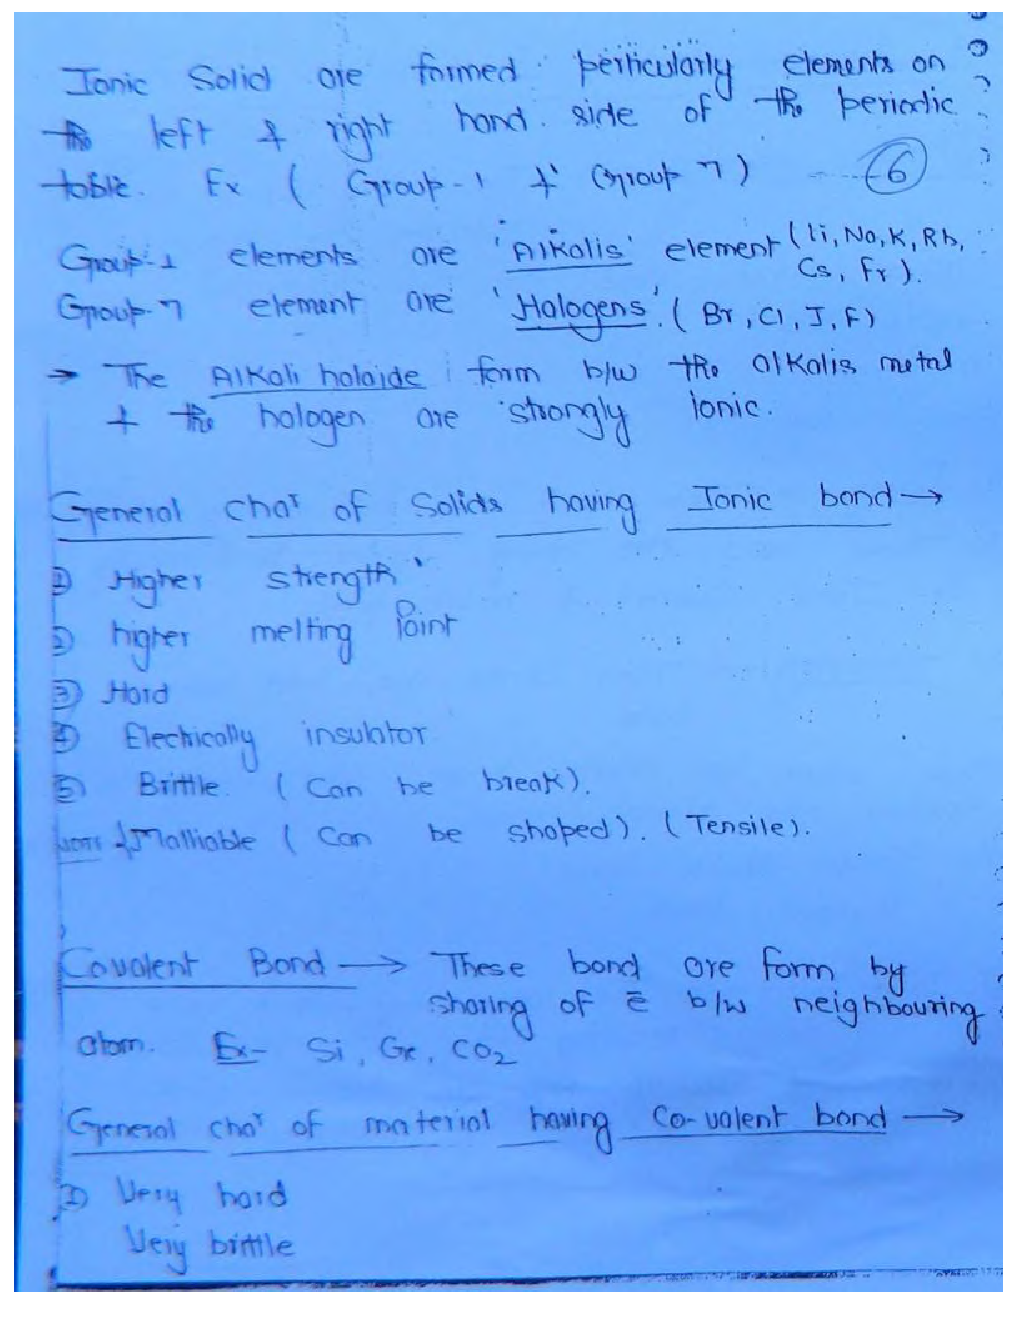 Ionic Solid are formed perticularly elements on
the left & right hand side of the periodic
table. Ex ( Group-1 & Group 7 ) 6
Group-1 elements are 'Alkalis' element (li, Na, K, Rb,
Cs, Fr).
Group-7 element are 'Halogens'. ( Br, Cl, I, F)
→ The Alkali halaide form b/w the alkalis metal
& the halogen are strongly ionic.
General char of Solids having Ionic bond →
① Higher strength
② higher melting Point
③ Hard
④ Electrically insulator
⑤ Brittle. ( Can be break).
{Malliable ( Can be shaped). (Tensile).
Covalent Bond → These bond are form by
sharing of ē b/w neighbouring
atom. Ex- Si, Ge, CO2
General char of material having Co-valent bond →
① Very hard
Very brittle